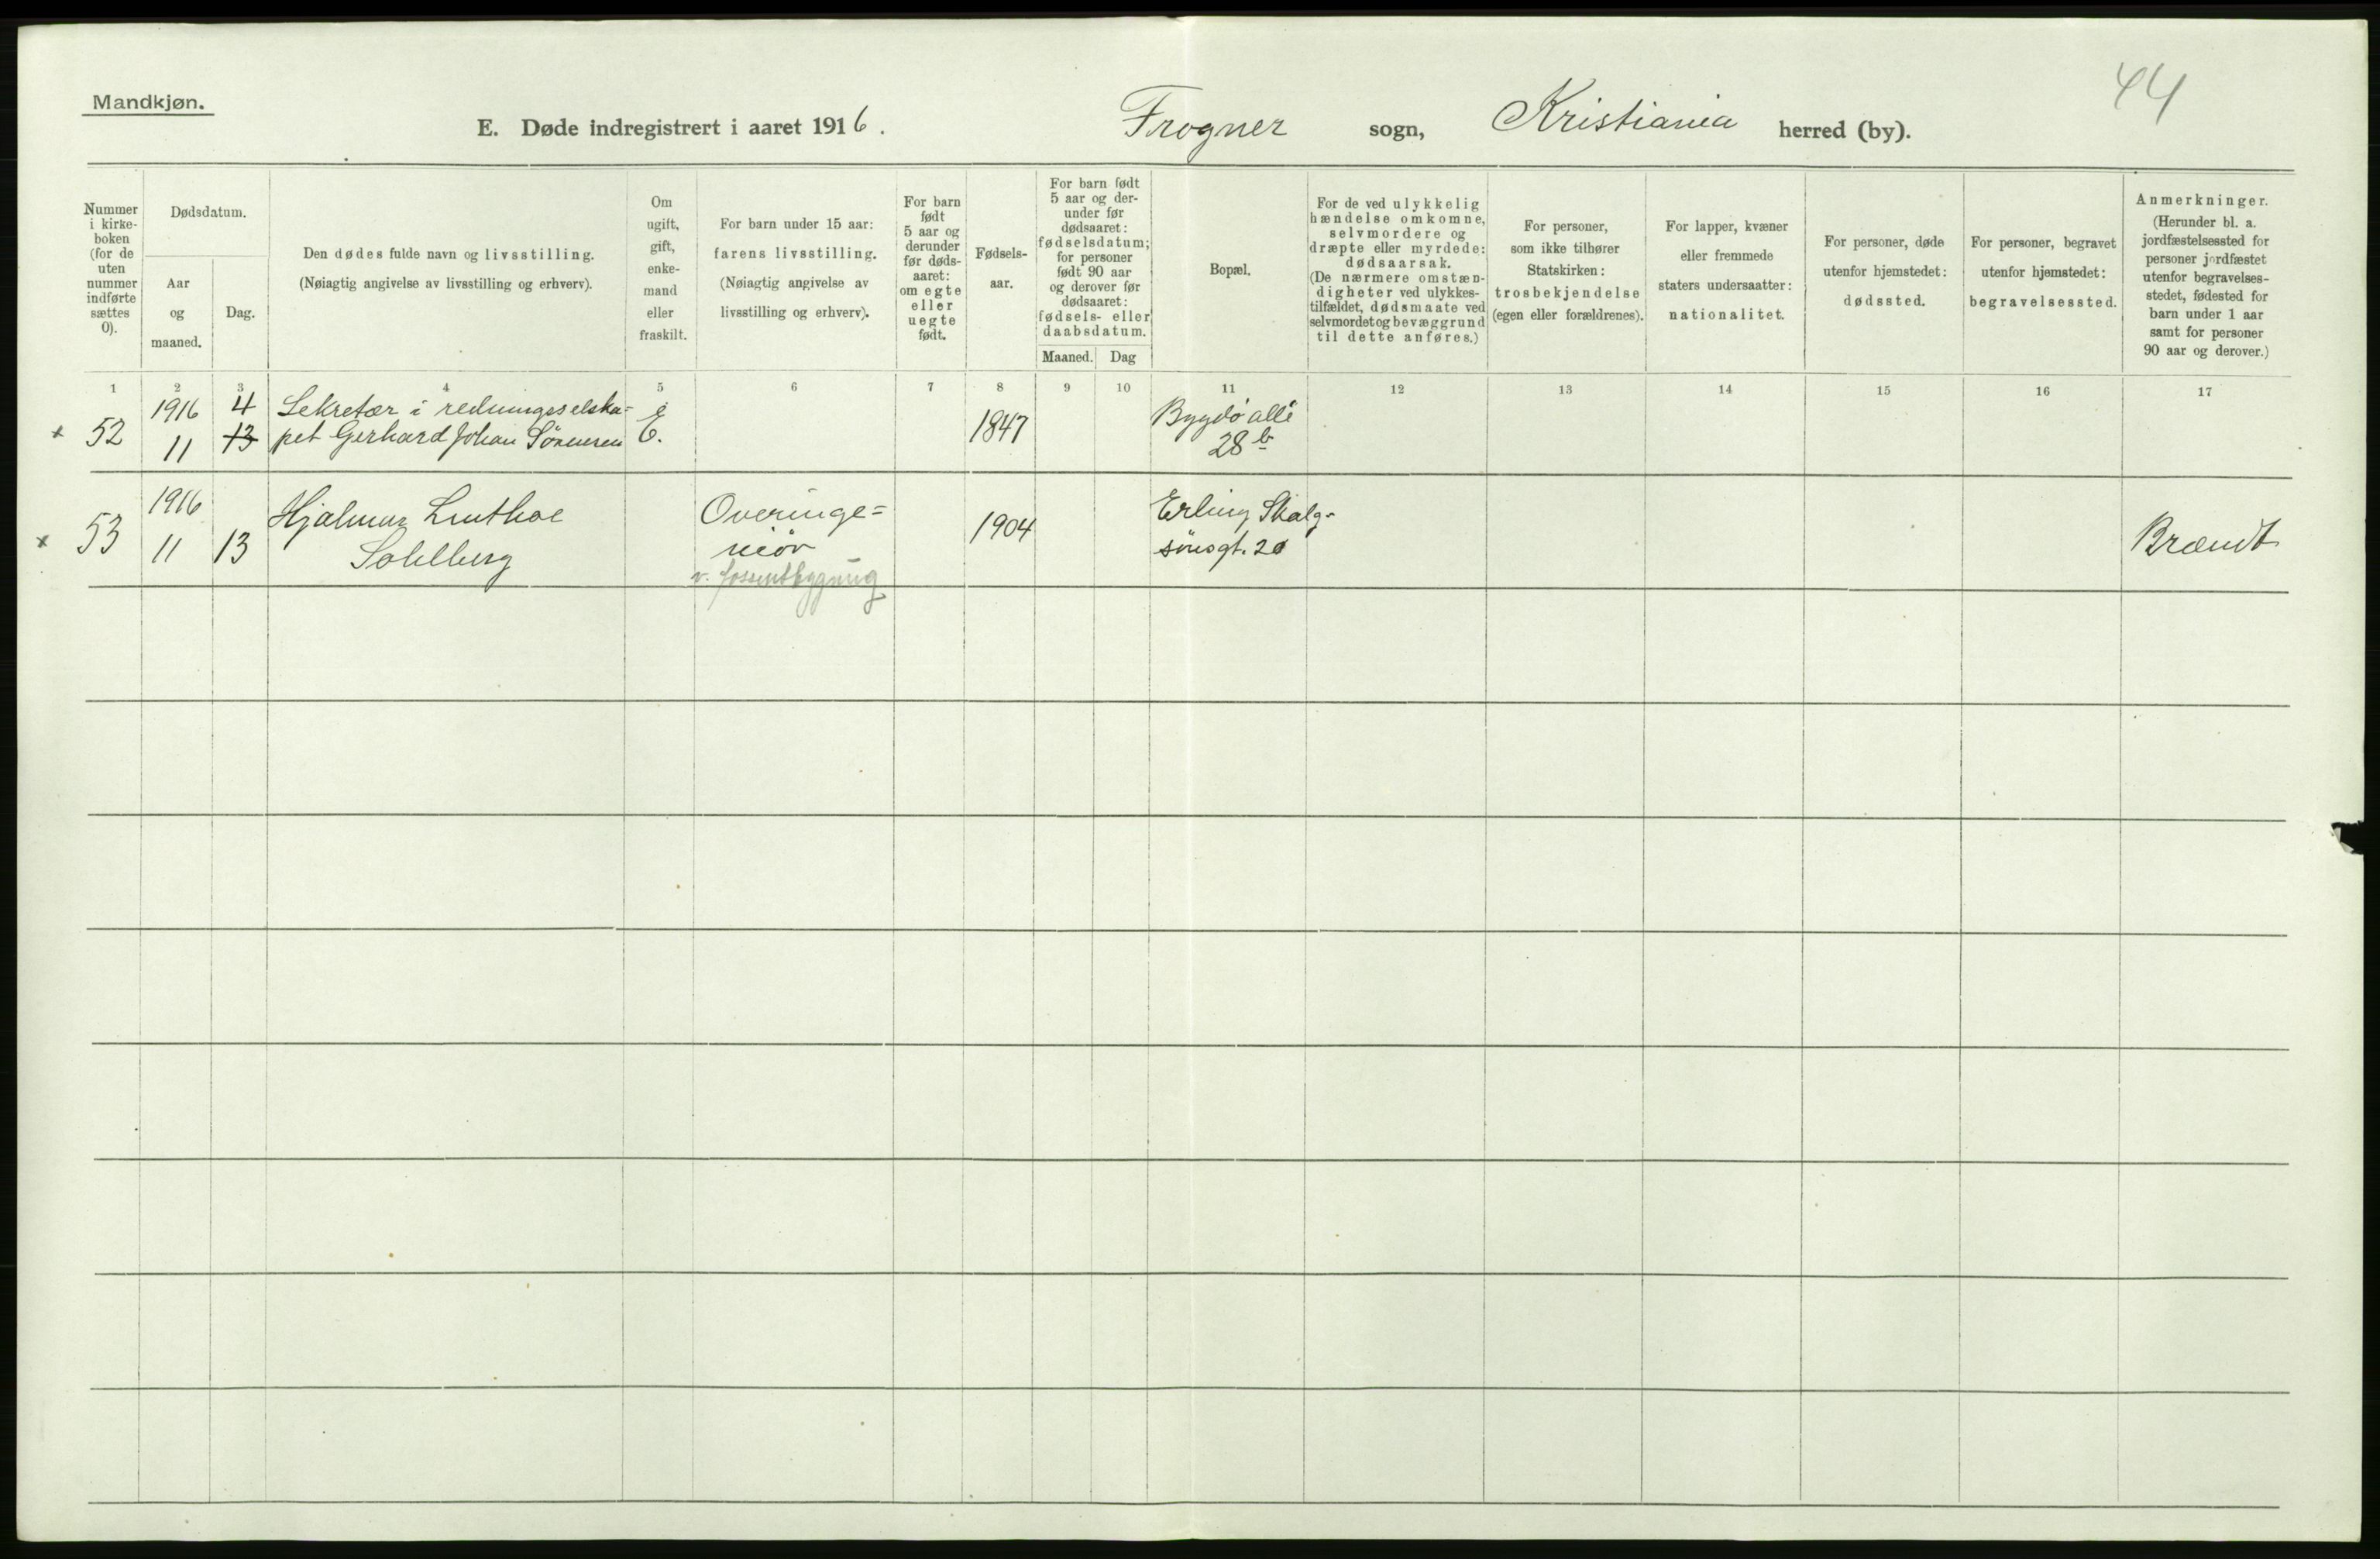 Mandkjøn.
44
E. Døde indregistrert i aaret 1916.
Frogner sogn, Kristiania herred (by).
Nummer
i kirke-
boken
(for de
uten
nummer
indførte
sættes
0).
Dødsdatum.
Aar
og
maaned.
Dag.
Den dødes fulde navn og livsstilling.
(Nøiagtig angivelse av livsstilling og erhverv).
Om
ugift,
gift,
enke-
mand
eller
fraskilt.
For barn under 15 aar:
farens livsstilling.
(Nøiagtig angivelse av
livsstilling og erhverv).
For barn
født
5 aar og
derunder
før døds-
aaret:
om egte
eller
uegte
født.
Fødsels-
aar.
For barn født
5 aar og der-
under før
dødsaaret:
fødselsdatum;
for personer
født 90 aar
og derover før
dødsaaret:
fødsels- eller
daabsdatum.
Maaned. Dag
Bopæl.
For de ved ulykkelig
hændelse omkomne,
selvmordere og
dræpte eller myrdede:
dødsaarsak.
(De nærmere omstæn-
digheter ved ulykkes-
tilfældet, dødsmaate ved
selvmordet og bevæggrund
til dette anføres.)
For personer,
som ikke tilhører
Statskirken:
trosbekjendelse
(egen eller forældrenes).
For lapper, kvæner
eller fremmede
staters undersaatter:
nationalitet.
For personer, døde
utenfor hjemstedet:
dødssted.
For personer, begravet
utenfor hjemstedet:
begravelsessted.
Anmerkninger.
(Herunder bl. a.
jordfæstelsessted for
personer jordfæstet
utenfor begravelses-
stedet, fødested for
barn under 1 aar
samt for personer
90 aar og derover.)
1 2 3 4 5 6 7 8 9 10 11 12 13 14 15 16 17
x 52
1916
11
4
13
Sekretær i redningsselska-
pet Gerhard Johan Sörensen
E.
1847
Bygdö allé
28 b
x 53
1916
11
13
Hjalmar
Sohlberg
Overinge=
niör
v. fossentbygning
1904
Erling Skalg-
sönsgt. 20
Brændt